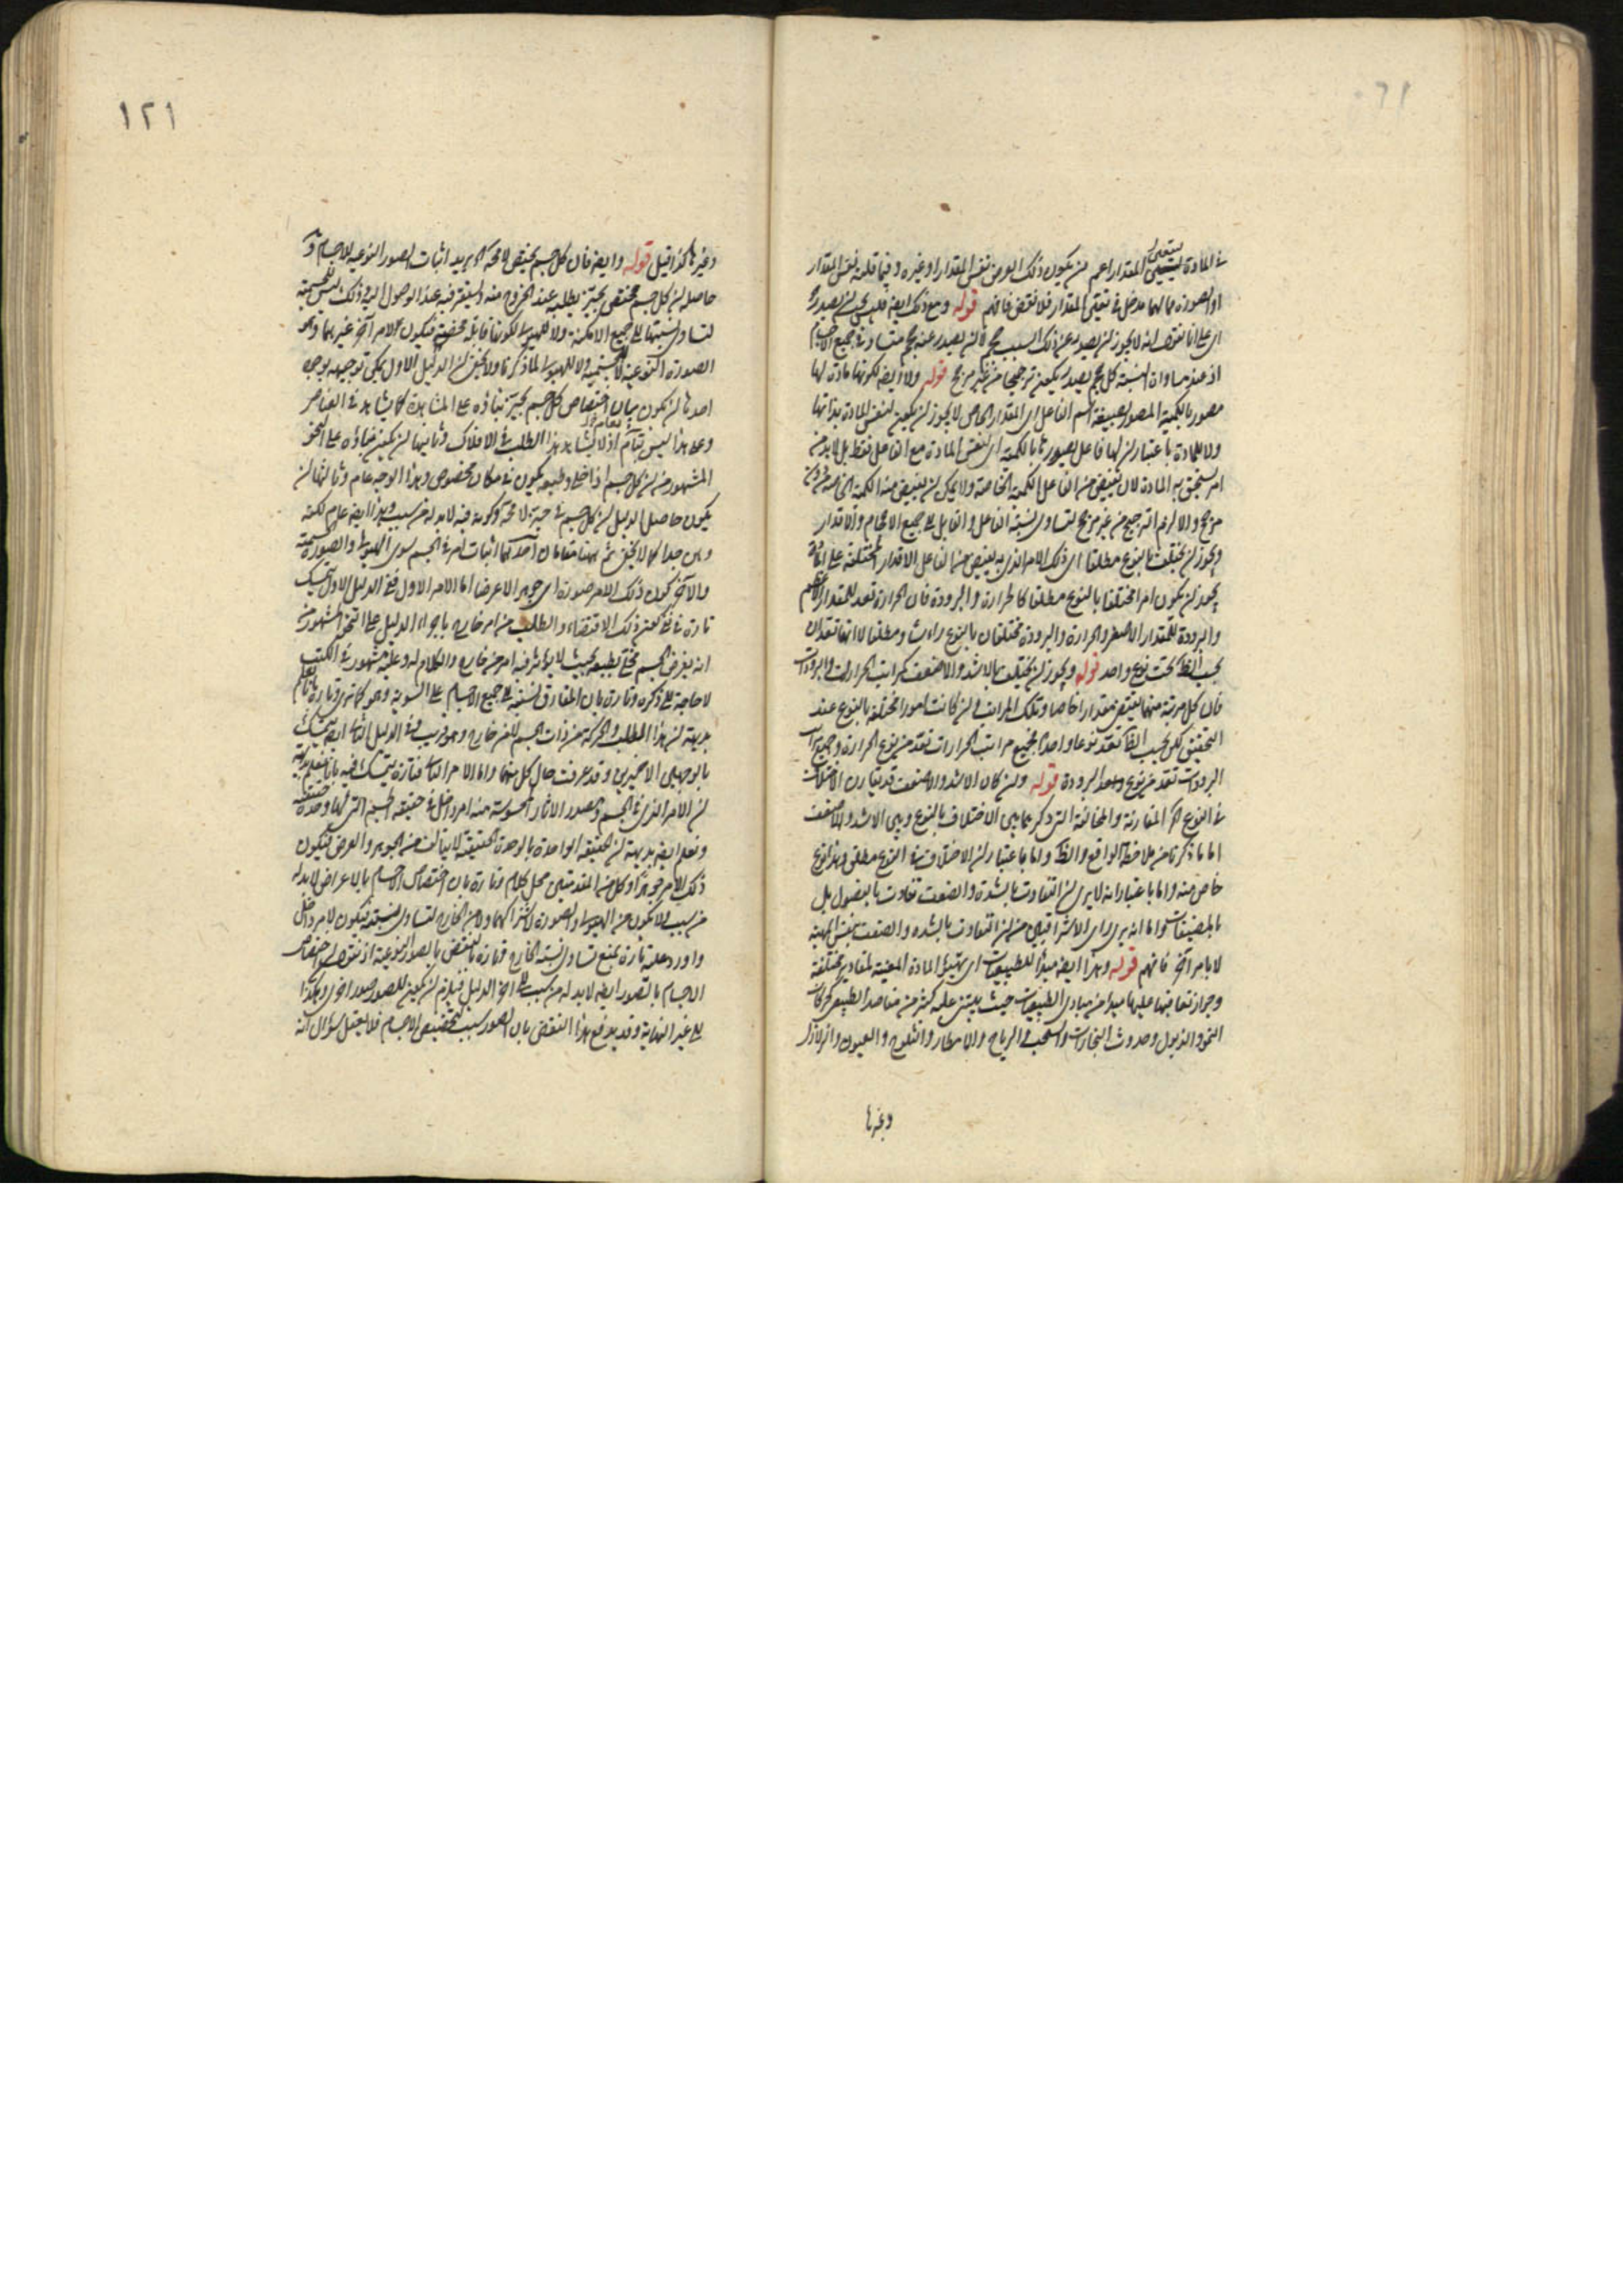 في المادة المقدار اعم من ان يكون ذلك العرض نفس المقدار او غيره وفيما قلت نفس المقدار
او الصورة مما لها مدخل في تعين المقدار فلا نقض فافهم قوله ومع ذلك ايضا فليس يجب ان يصدر
اي على انا نقول انه لا يجوز ان يصدر عن ذلك السبب حجم لان يصدر عنه حجم متساو في جميع الاجسام
اذ عند مساواة نسبة كل حجم يصدر يكون ترجيحا من غير مرجح قوله ولا ايضا لكونها مادة لها
مصور بالكمية المصور بصيغة اسم الفاعل اي المقدار الخاص لا يجوز ان يكون لنفس المادة بذاتها
ولا للمادة باعتبار ان لها فاعل يصور بالكمية اي لنفس المادة مع الفاعل فقط بل لا بد من
امر يستحق به المادة لان يفيض من الفاعل الكمية الخاصة ولا يمكن ان يفيض منه الكمية الخاصة من دون
مرجح والا لزم الترجيح من غير مرجح لتساوي نسبة الفاعل والقابل الى جميع الاحجام والاقدار
ويجوز ان يختلف بالنوع مطلقا اي ذلك الامر الذي به يفيض من الفاعل الاقدار المختلفة على المادة
يجوز ان يكون امرا مختلفا بالنوع مطلقا كالحرارة والبرودة فان الحرارة تعد للمقدار الاعظم
والبرودة للمقدار الاصغر والحرارة والبرودة مختلفان بالنوع رأسا ومطلقا لا انهما تعدان
بحسب الظ تحت نوع واحد قوله ويجوز ان يختلف بالاشد والاضعف كمراتب الحرارات والبرودات
فان كل مرتبة منهما يقتضي مقدارا خاصا وتلك المراتب وان كانت امورا مختلفة بالنوع عند
التحقيق لكن بحسب الظ تعد نوعا واحدا فجميع مراتب الحرارات تعد من نوع الحرارة وجميع مراتب
البرودات تعد من نوع البرودة قوله وان كان الاشد والاضعف قد يقارن الاختلاف
في النوع المقارنة والمخالفة التي ذكر بين الاختلاف بالنوع وبين الاشد والاضعف
اما ما ذكرنا من ملاحظة الواقع والظ واما باعتبار ان الاختلاف في النوع مطلق وهذا نوع
خاص منه واما باعتبار انه لا يرى ان التفاوت بالشدة والضعف تفاوت بالفصول بل
واما انه يرى راي الاشراقيين من ان التفاوت بالشدة والضعف بنفس المهية
لا بامر اخر فافهم قوله وهذا ايضا مبدأ للطبيعيات اي تهيؤ المادة المعينة لمقادير مختلفة
وجواز تعاقبها عليها مبدأ من مبادي الطبيعيات حيث يبتني عليه كثير من مقاصد الطبيعي كحركات
النمو والذبول وحدوث البخارات والسحب والرياح والامطار والثلوج والعيون والزلازل
وغيرها
١٢١
وغيرها كذا قيل قوله وايضا فان كل جسم يختص لا محة يريد اثبات الصور النوعية للاجسام
حاصله ان كل جسم مختص بحيز يطلبه عند الخروج منه ويستقر فيه عند الوصول اليه وذلك ليس للجسمية
لتساوي نسبتها الى جميع الامكنة ولا للهيولى لكونها قابلة محضة فيكون لامر آخر غيرهما وهو
الصورة النوعية لا للجسمية ولا للهيولى لما ذكرنا ولا يخفى ان الدليل الاول يمكن توجيهه بوجوه
احدها ان يكون بيان اختصاص كل جسم بحيز بناؤه على المشاهدة كما يشاهد في العناصر
وعلى هذا ليس بتام اذ لا يشاهد هذا الطلب في الافلاك وثانيها ان يكون بناؤه على النحو
المشهور من ان كل جسم اذا خلي وطبعه يكون في مكان مخصوص وهذا الوجه عام وثالثها ان
يكون حاصل الدليل ان كل جسم في حيز لا محة وكونه فيه لا بد له من سبب وهذا ايضا عام لكنه
جدا كما لا يخفى ثم ههنا مقامان احدهما اثبات امر في الجسم سوى الهيولى والصورة الجسمية
والآخر كون ذلك الامر صورة اي جوهرا لا عرضا اما الامر الاول ففي الدليل الاول يتمسك
تارة في نفي كون ذلك الاقتضاء والطلب من امر خارج باجراء الدليل على النحو المشهور من
انه يفرض الجسم مخلى بطبعه بحيث لا يؤثر فيه امر من خارج والكلام له وعليه مشهور في الكتب
لا حاجة الى ذكره وتارة بان المفارق نسبته الى جميع الاجسام على السوية وهو كما ترى وتارة بانا نعلم
بديهة ان هذا الطلب والحركة من ذات الجسم لا من خارج وهو قريب وفي الدليل الثاني ايضا يتمسك
بالوجهين الاخيرين وقد عرفت حال كل منهما واما الامر الثاني فتارة يتمسك فيه بانا نعلم بديهة
ان الامر الذي في الجسم ومصدر الاثار المحسوسة منه امر داخل في حقيقة الجسم التي لها وحدة حقيقية
ونعلم ايضا بديهة ان الحقيقة الواحدة بالوحدة الحقيقية لا يتالف من الجوهر والعرض فيكون
ذلك الامر جوهرا وكل من المقدمتين محل كلام وتارة بان اختصاص الاجسام بالاعراض لا بد له
من سبب لا يكون من الهيولى والصورة لاشتراكهما ولا من الخارج لتساوي نسبته فيكون لامر داخل
واورد عليه تارة بمنع تساوي نسبة الخارج وتارة بالنقض بالصور النوعية اذ نقول اختصاص
الاجسام بالصور ايضا لا بد له من سبب الى اخر الدليل فيلزم ان يكون للصور صور اخرى وهكذا
الى غير النهاية وقد يدفع هذا النقض بان الصور سبب لتخصيص الاجسام فلا يعقل سؤال انه